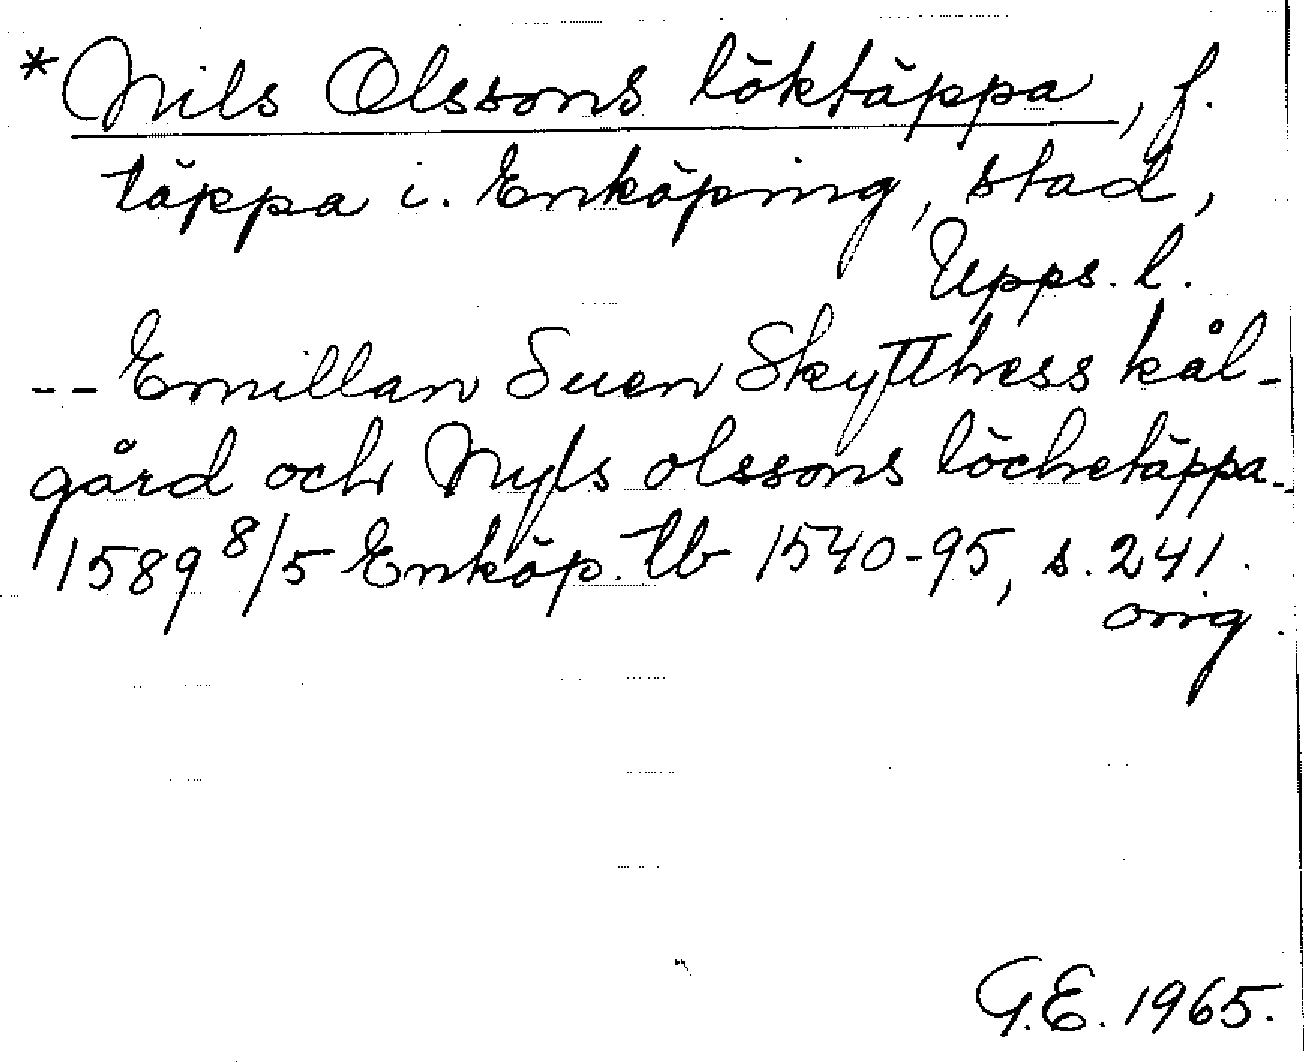 *Nils Olssons löktäppa, f.
täppa i. Enköping, stad,
Upps. l.
-- Emillan Suen Skyttthess kål-
gård och Nyls olssons löchetäppa--
1589 8/5 Enköp. tb 1540-95, s. 241.
orig.
G.E. 1965.